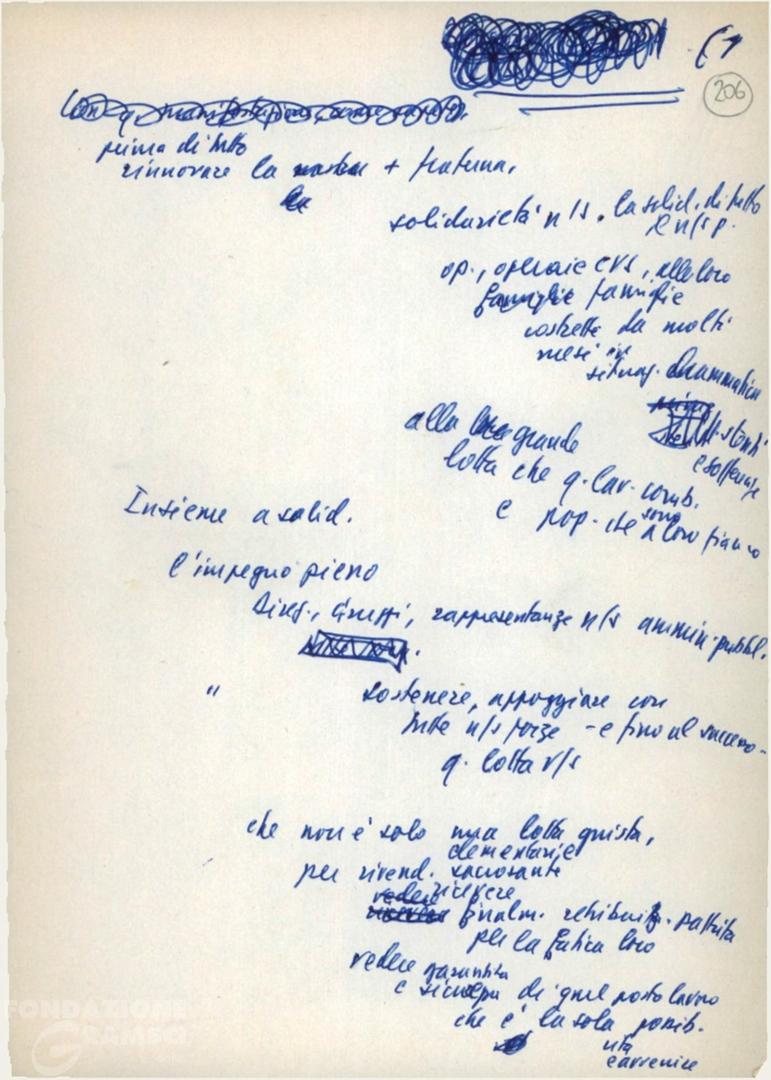 (1
206
prima di tutto
rinnovare la + fraterna,
solidarietà n/s. la solid. di tutto
n/s p.
op., operaie CVS, alle loro
famiglie famiglie
costrette da molti
mesi in
situaz. drammatica
di stenti
e sofferenze
alla loro grande
lotta che q. lav. comb.
e pop. che sono a loro fianco
Insieme a solid.
l'impegno pieno
Direz., Gruppi, rappresentanze n/s ammin. pubbl.
"
sostenere, appoggiare con
tutte n/s forze - e fino al successo -
q. lotta v/s
che non è solo una lotta giusta,
elementari
per rivend. sacrosante
vedere ricevere
finalm. retribuz. pattuita
per la fatica loro
vedere garantita
e sicura di quel posto lavoro
che è la sola possib.
vita
e avvenire
FONDAZIONE
GRAMSCI